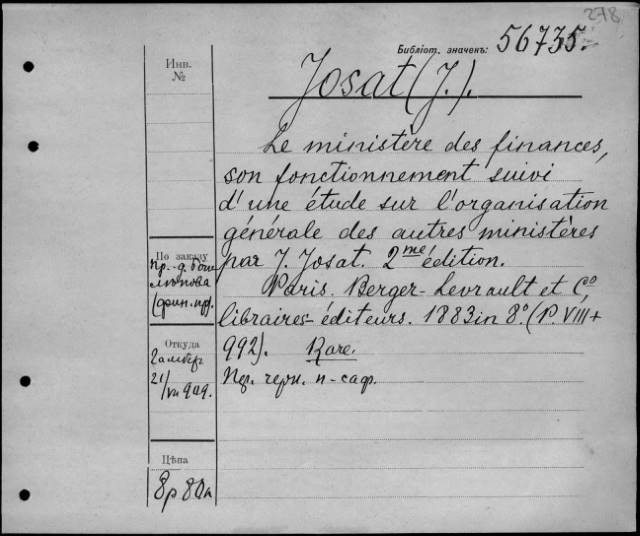 278
Библіот. значекъ: 56735.
Инв.
№
Josat (J.).
Le ministère des finances,
son fonctionnement suivi
d'une étude sur l'organisation
générale des autres ministères
par J. Josat. 2me édition.
Paris, Berger-Levrault et Co,
libraires-éditeurs. 1883 in 8º. (P. VIII +
992). Rare.
По заказу
пр.-д. Бого
лѣпова
(фин. пр).
Откуда
Гамбер
21/VII 909.
Пер. черн. п-саф.
Цѣна
8р 80к